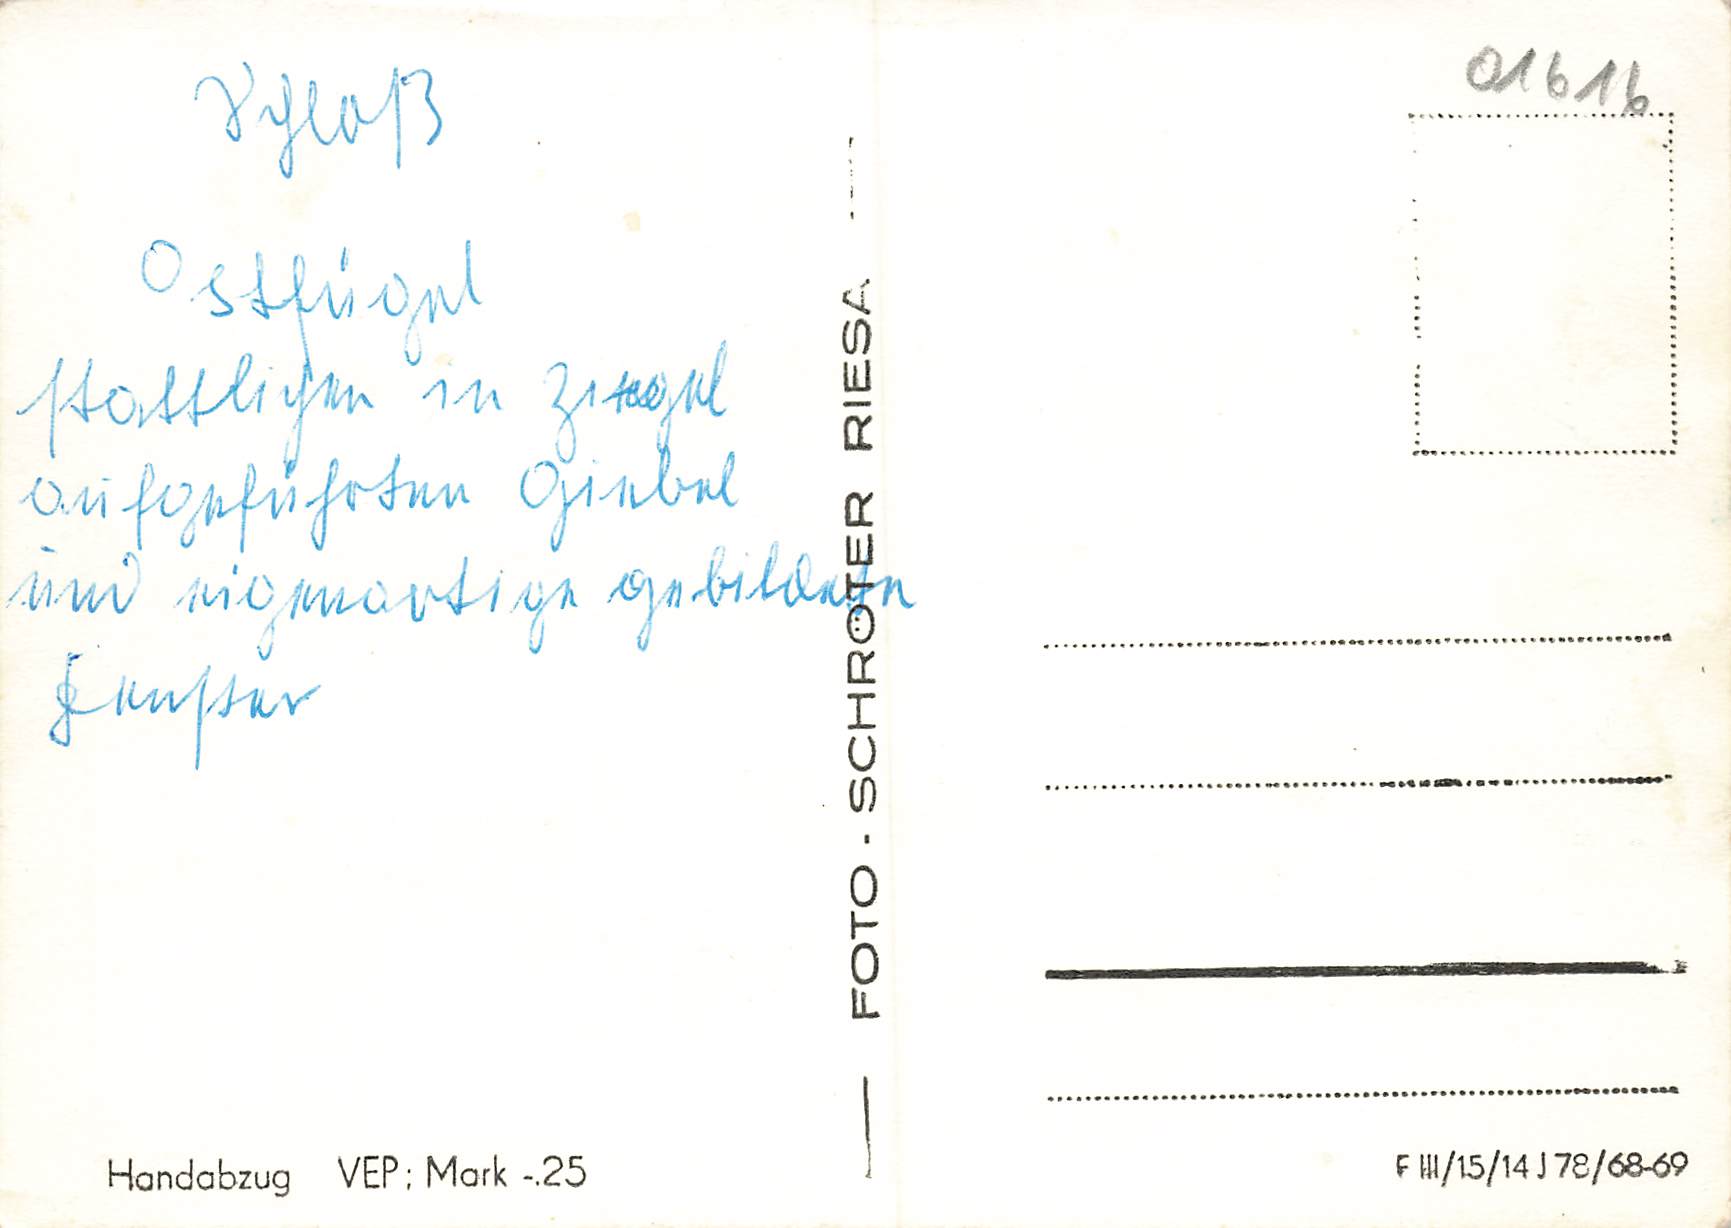 Schloß
Ostfügel
stattlichen in Ziegel
aufgeführten Giebel
und eigenartige gebildete
Fenster
Handabzug VEP; Mark -.25
FOTO - SCHRÖTER RIESA
01616
F III/15/14 J 78/68-69